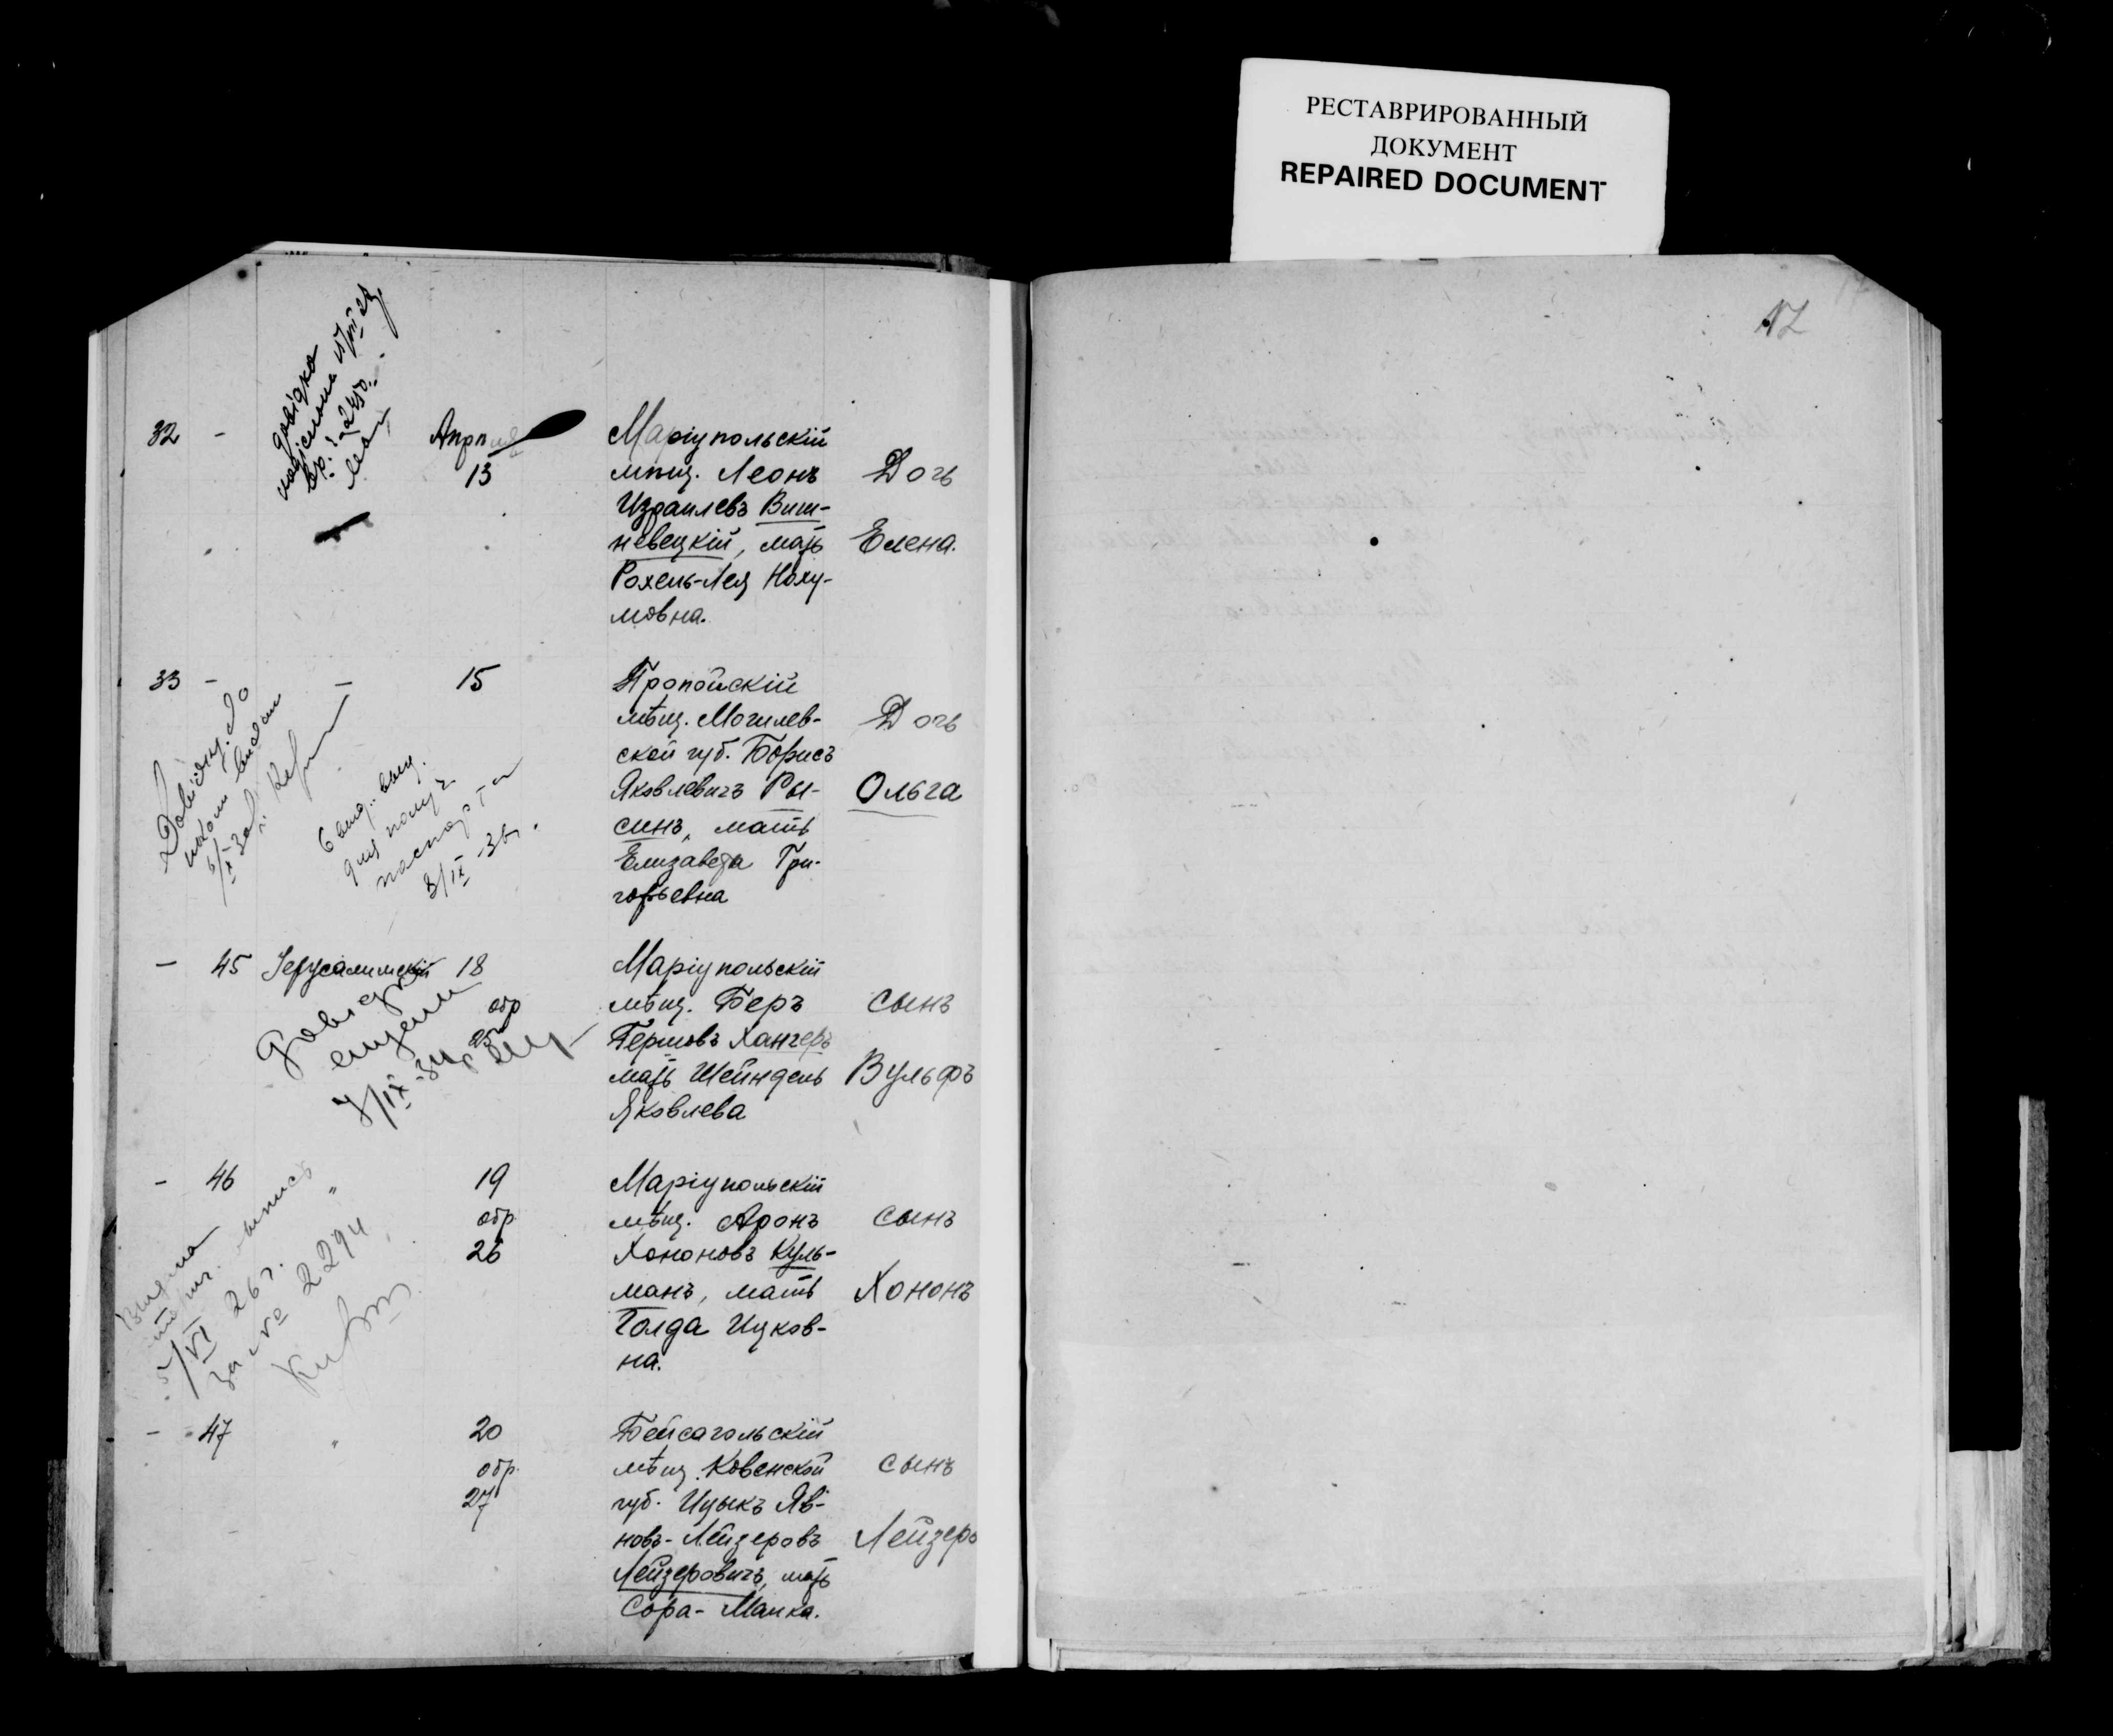 РЕСТАВРИРОВАННЫЙ
ДОКУМЕНТ
REPAIRED DOCUMENT
12
32 -
довідка
2450
Апрпля
13
Маріупольскій
мпщ. Леонъ
Израилевъ Виш-
невецкій, мать
Рохель-Лея Наху-
мовна.
Дочь
Елена.
33 - - 15
Пропойскій
мѣщ. Могилев-
ской губ. Борисъ
Яковлевичъ Ры-
синъ, мать
Елизавета Гри-
горьевна
Дочь
Ольга
паспорта
3/IX-36г.
- 45 Іерусалимскій 18
обр
25
Маріупольскій
мѣщ. Беръ
Гершовъ Ханчеръ
мать Шейндель
Яковлева
сынъ
Вульфъ
7/IX-34г
- 46 " 19
обр
26
Маріупольскій
мѣщ. Аронъ
Хононовъ Куль-
манъ, мать
Голда Ицков-
на.
сынъ
Хононъ
5/VI 26г.
за № 2294
- 47 " 20
обр.
27
Бейсагольскій
мѣщ. Ковенской
губ. Ицыкъ Яв-
новъ-Лейзеровъ
Лейзеровичъ, мать
Сора-Малка.
сынъ
Лейзеръ